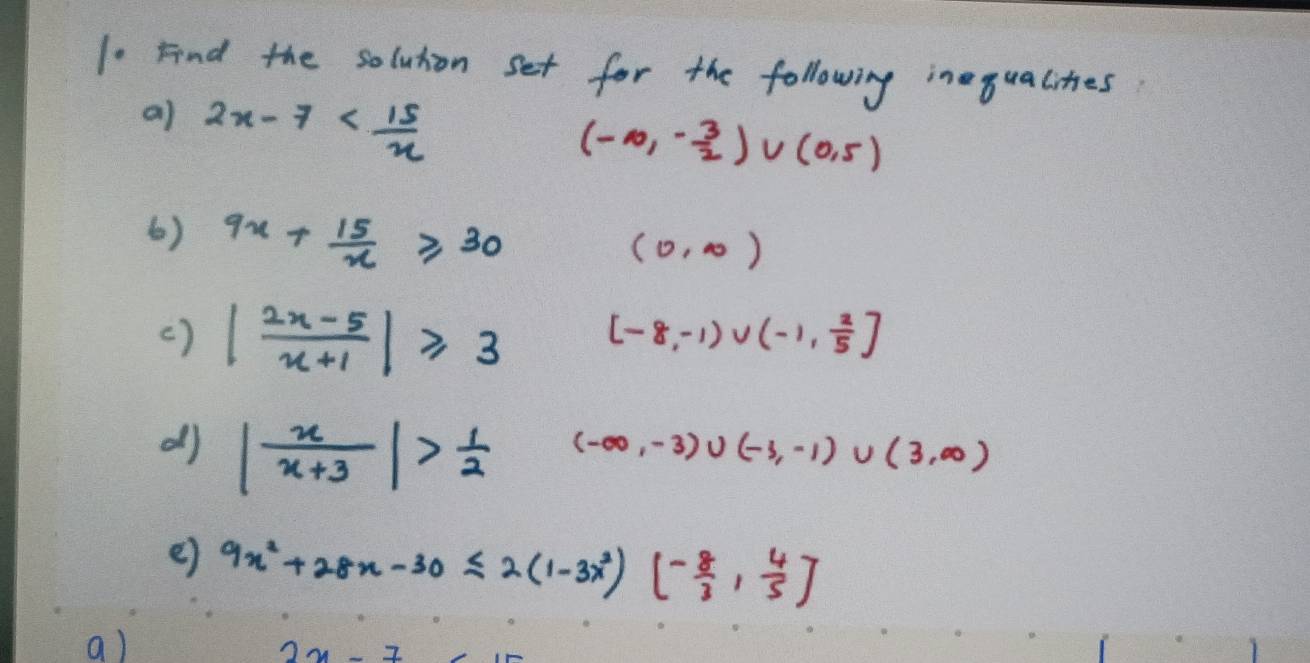 1. Find the solution set for the following inequalities:
a) 2x - 7 < 15/x (-∞, -3/2) ∪ (0,5)
b) 9x + 15/x ⩾ 30 (0, ∞)
c) |(2x-5)/(x+1)| ⩾ 3 [-8,-1) ∪ (-1, 2/5]
d) |x/(x+3)| > 1/2 (-∞,-3) ∪ (-3,-1) ∪ (3,∞)
e) 9x² + 28x - 30 ≤ 2(1-3x²) [-8/3, 4/5]
a) 2x - 7 < 15